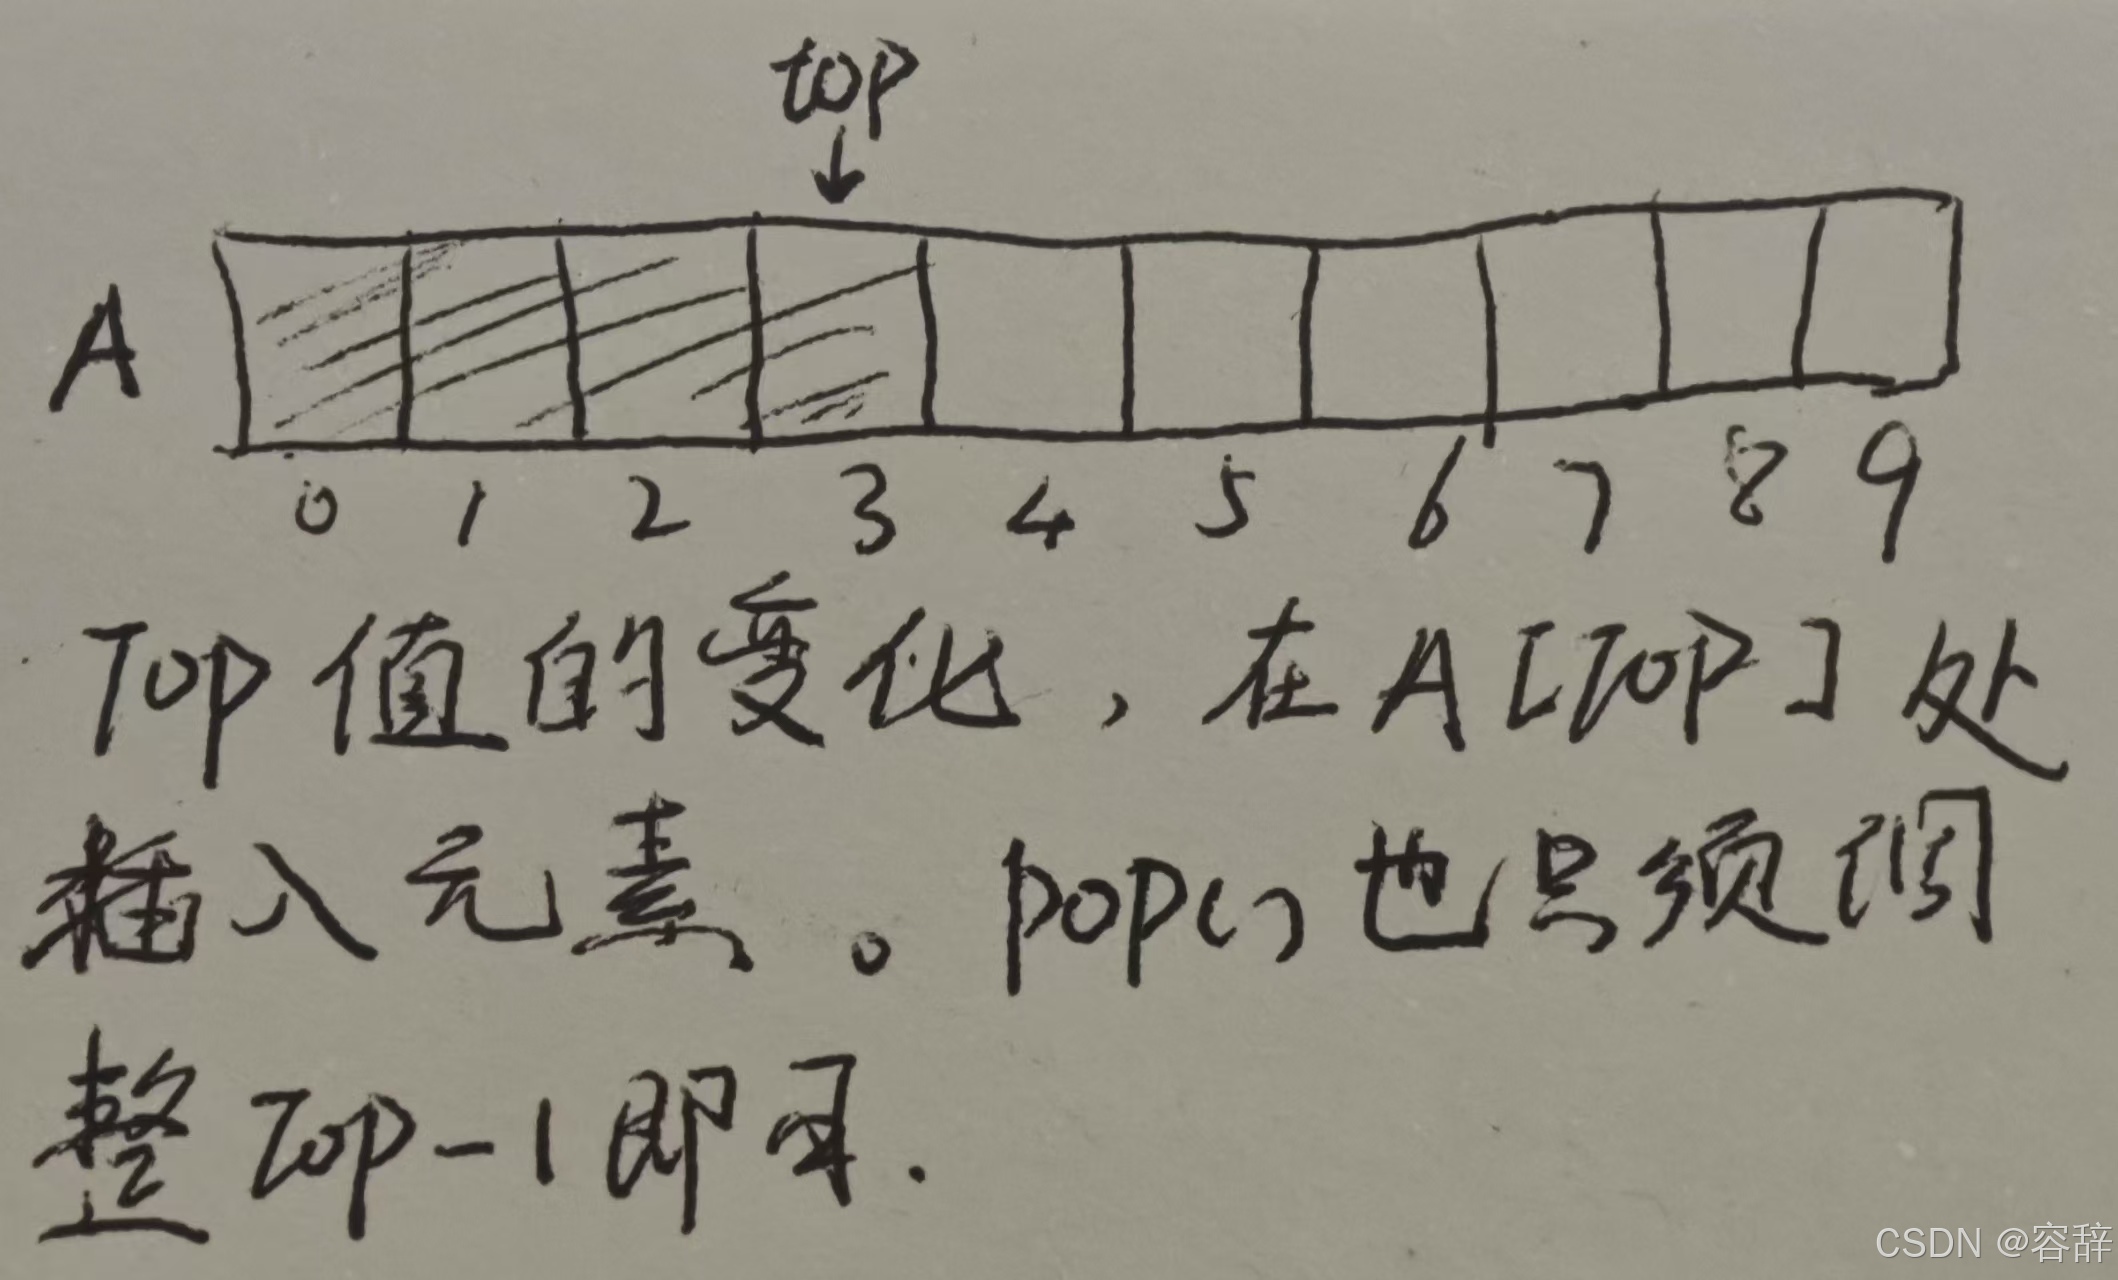 top
A
0 1 2 3 4 5 6 7 8 9
Top值的变化，在A[Top]处
插入元素。pop()也只须调
整Top-1即可.
CSDN @容辞